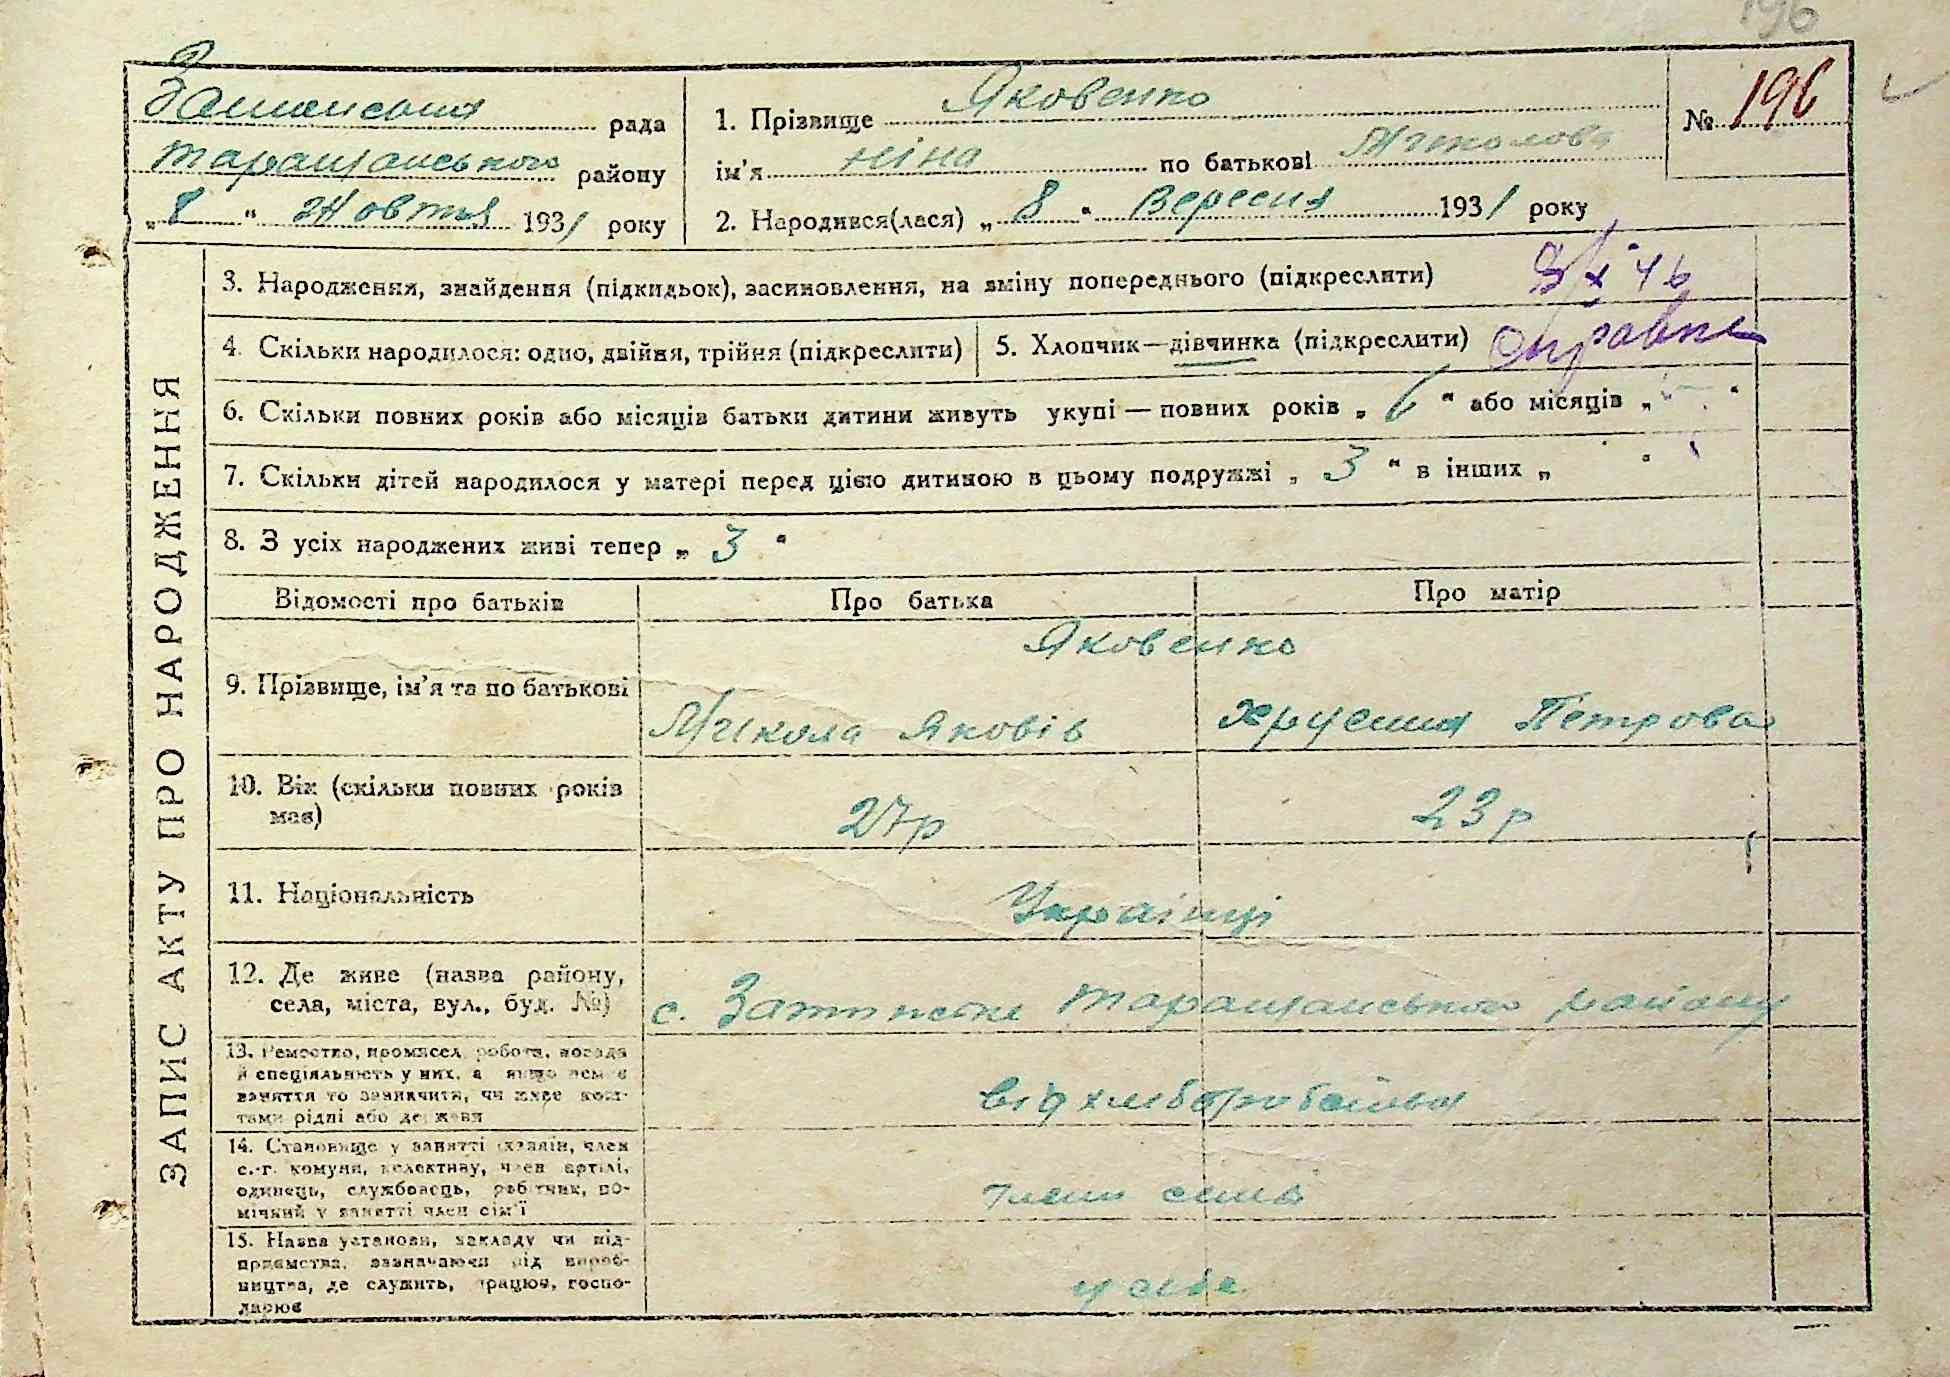 196
рада
Таращанського району
„ 8 “ Жовтня 1931 року
1. Прізвище Яковенко
ім'я Ніна по батькові Миколова
2. Народився(лася) „ 8 “ Вересня 1931 року
№ 196
ЗАПИС АКТУ ПРО НАРОДЖЕННЯ
3. Народження, знайдення (підкидьок), засиновлення, на зміну попереднього (підкреслити)
4. Скільки народилося: одно, двійня, трійня (підкреслити)
5. Хлопчик—дівчинка (підкреслити)
6. Скільки повних років або місяців батьки дитини живуть укупі — повних років „ 6 “ або місяців „ - “
7. Скільки дітей народилося у матері перед цією дитиною в цьому подружжі „ 3 “ в інших „ “
8. З усіх народжених живі тепер „ 3 “
Відомості про батьків Про батька Про матір
9. Прізвище, ім'я та по батькові
Яковенко
Микола Яковів
Петрова
10. Вік (скільки повних років має)
27р
23р
11. Національність
Українці
12. Де живе (назва району,
села, міста, вул., буд. №)
с. Таращанського району
13. Ремество, промисел, робота, посада
й спеціяльність у них, а якщо нема
заняття то зазначити, чи живе кош-
тами рідні або держави
від хліборобства
14. Становище у занятті (хазяїн, член
с.-г. комуни, колективу, член артілі,
одинець, службовець, робітник, по-
мічний у занятті член сім'ї
члени
15. Назва установи, закладу чи під-
приємства, зазначаючи рід вироб-
ництва, де служить, працює, госпо-
дарює
у себе